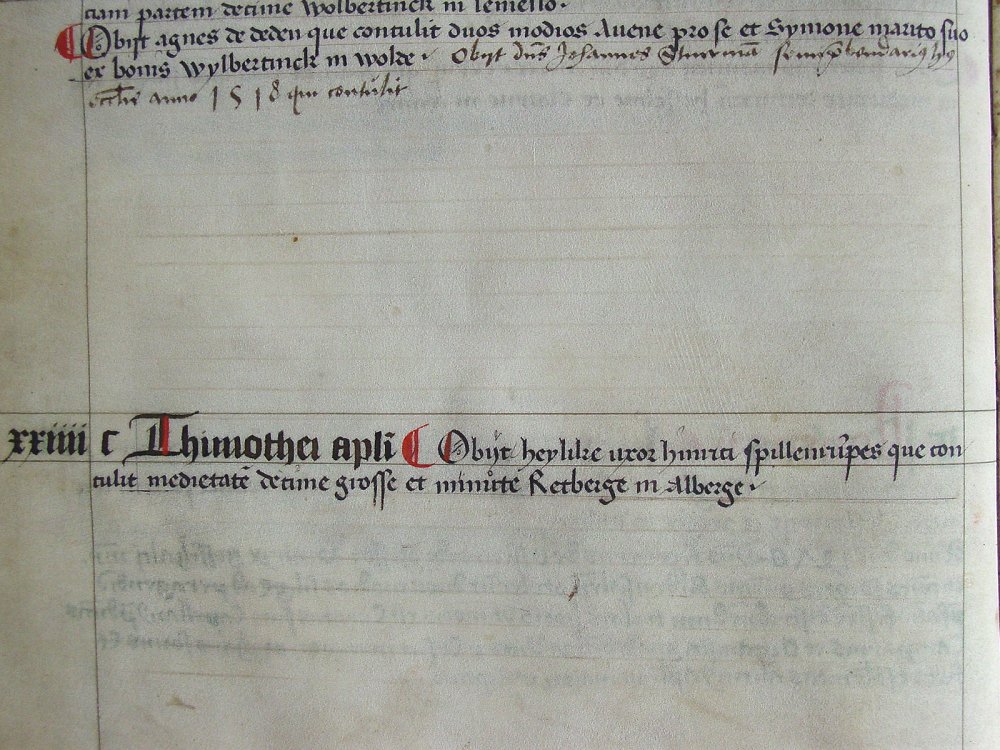 ciam partem decime Wolbertinck in lemello.
Obijt agnes de deden que contulit duos modios Avene pro se et Symone marito suo
ex bonis Wylbertinck in wolde. Obijt dn̄s Johannes
eccl̄ie anno 1518 qui contulit
xxiiii c Thimothei apl̄i Obijt heylike uxor hinrici que con
tulit medietatē decime grosse et minute Retberge in Alberge.